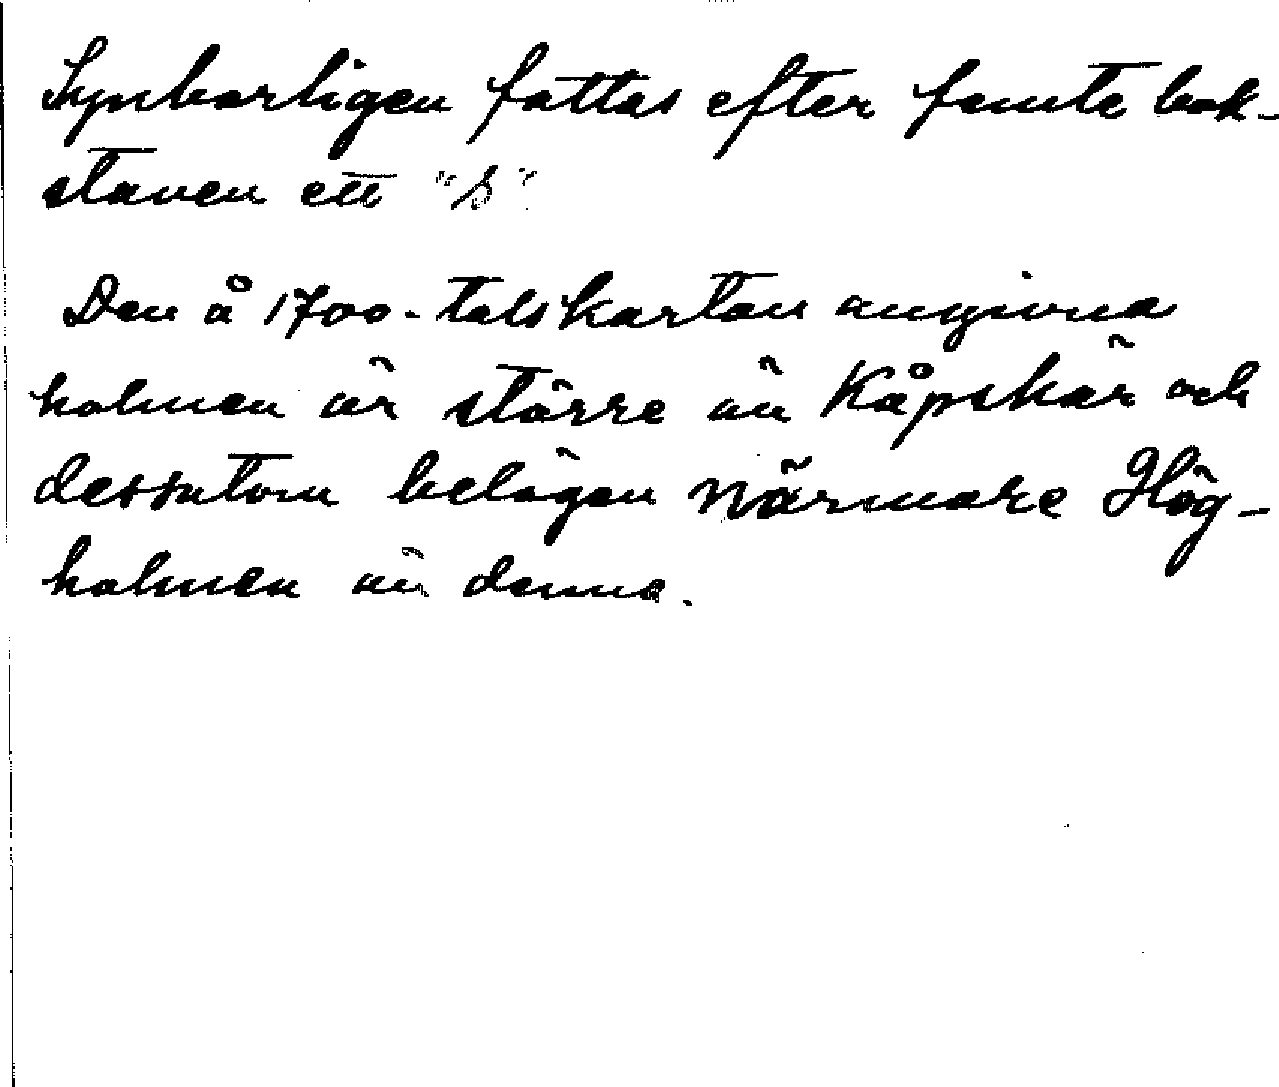 Synbarligen fattas efter femte bok-
staven ett "S"
Den å 1700-talskartan angivna
holmen är större än Kåpskär och
dessutom belägen närmare Hög-
holmen än denna.